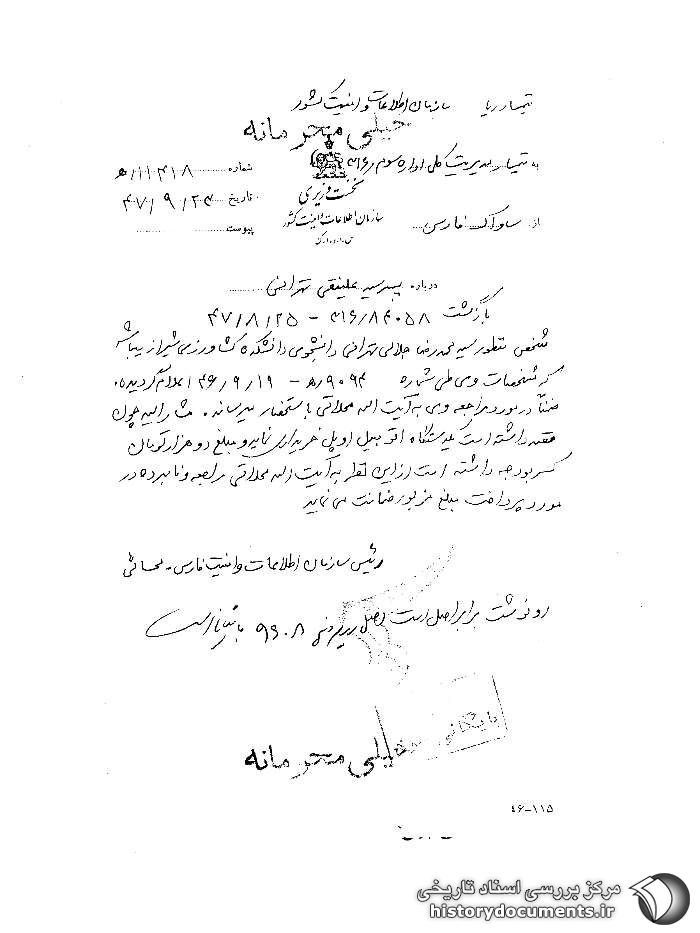 تیمسار ریا سازمان اطلاعات و امنیت کشور
خیلی محرمانه
به تیمسار مدیریت کل اداره سوم ۳۱۶
شماره ۵/۱۱۴۱۸
نخست وزیری
تاریخ ۴۷/۹/۲۳
سازمان اطلاعات و امنیت کشور
از ساواک فارس
پیوست
س.ا.و.ا.ک
درباره پسر سید علینقی تهرانی
بازگشت ۳۱۶/۸۴۰۵۸ - ۴۷/۸/۲۵
شخص منظور سید محمدرضا جلالی تهرانی دانشجوی دانشکده کشاورزی شیراز میباشد
که مشخصات وی طی شماره ۵/۹۰۹۴ - ۴۶/۹/۱۹ اعلام گردیده.
ضمناً در مورد مراجعه وی به آیت اله محلاتی باستحضار میرساند. مشارالیه چون
قصد داشته است یکدستگاه اتومبیل اوپل خریداری نماید و مبلغ دو هزار تومان
کسر بودجه داشته است از این نظر به آیت اله محلاتی مراجعه و نامبرده در
مورد پرداخت مبلغ مزبور ضمانت می نماید
رئیس سازمان اطلاعات و امنیت فارس -
رونوشت برابر اصل است اصل در پرونده ۹۶۰۸ بایگانی است
بایگانی
خیلی محرمانه
۴۶-۱۱۵
مرکز بررسی اسناد تاریخی
historydocuments.ir